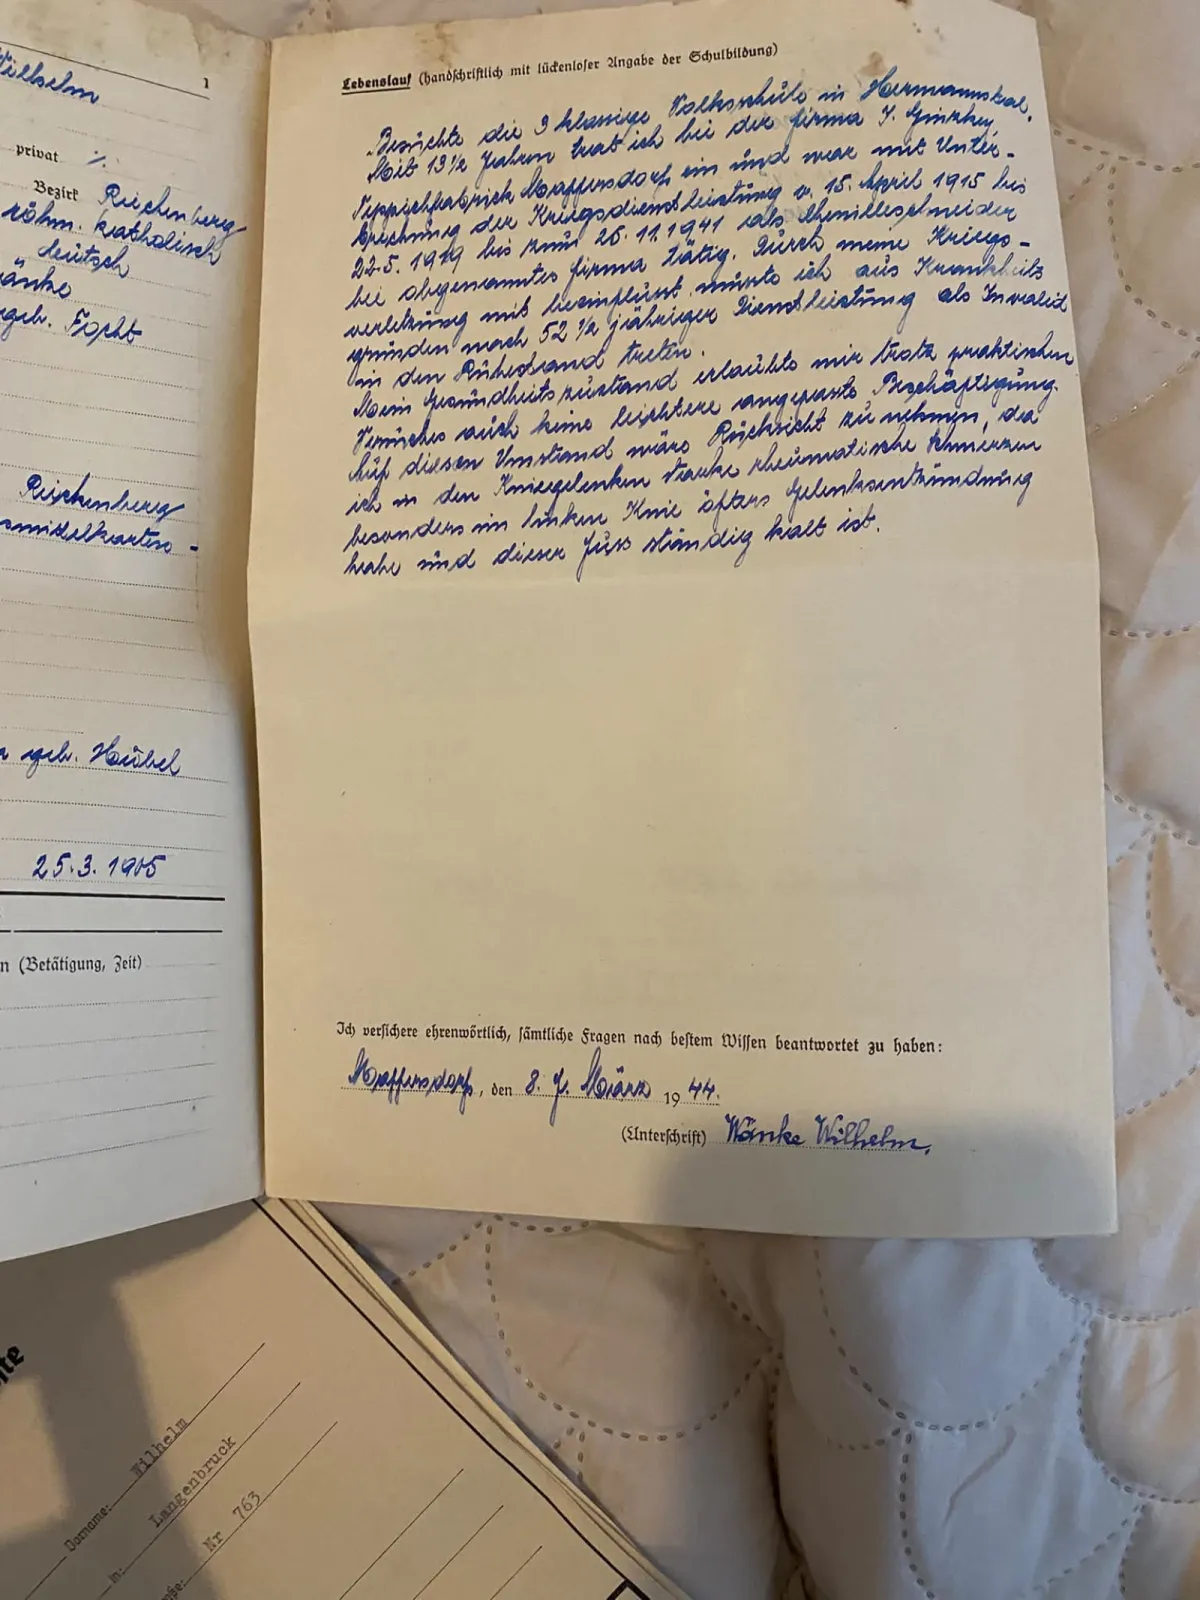 Wilhelm
1
privat ·/.
Bezirk Reichenberg
röhm. katholisch
deutsch
änke
geb. Focht
Reichenberg
smittelkarten-
geb. Hübel
25.3.1905
n (Betätigung, Zeit)
Lebenslauf (handschriftlich mit lückenloser Angabe der Schulbildung)
Besuchte die 3 klassige Volksschule in Hermannstal.
Mit 13½ Jahren trat ich bei der Firma J. Ginzkey,
Teppichfabrick Maffersdorf ein und war mit Unter-
brechung der Kriegsdienstleistung v. 15. April 1915 bis
22.5. 1919 bis zum 26.11.1941 als Chenilleschneider
bei obgenannter Firma tätig. Durch meine Kriegs-
verletzung mit beeinflusst, musste ich aus Krankheits
gründen nach 52½ jähriger Dienstleistung als Invalid
in den Ruhestand treten.
Mein Gesundheitszustand erlaubte mir trotz praktischen
Versuches auch keine leichtere angepasste Beschäftigung.
Auf diesen Umstand wäre Rücksicht zu nehmen, da
ich in den Kniegelenken starke rheumatische Schmerzen
besonders im linken Knie öfters Gelenksentzündung
habe und dieser Fuss ständig kalt ist.
Ich versichere ehrenwörtlich, sämtliche Fragen nach bestem Wissen beantwortet zu haben:
Maffersdorf, den 8. März 1944.
(Unterschrift) Wänke Wilhelm.
Vorname: Wilhelm
in: Langenbruck
Nr 763